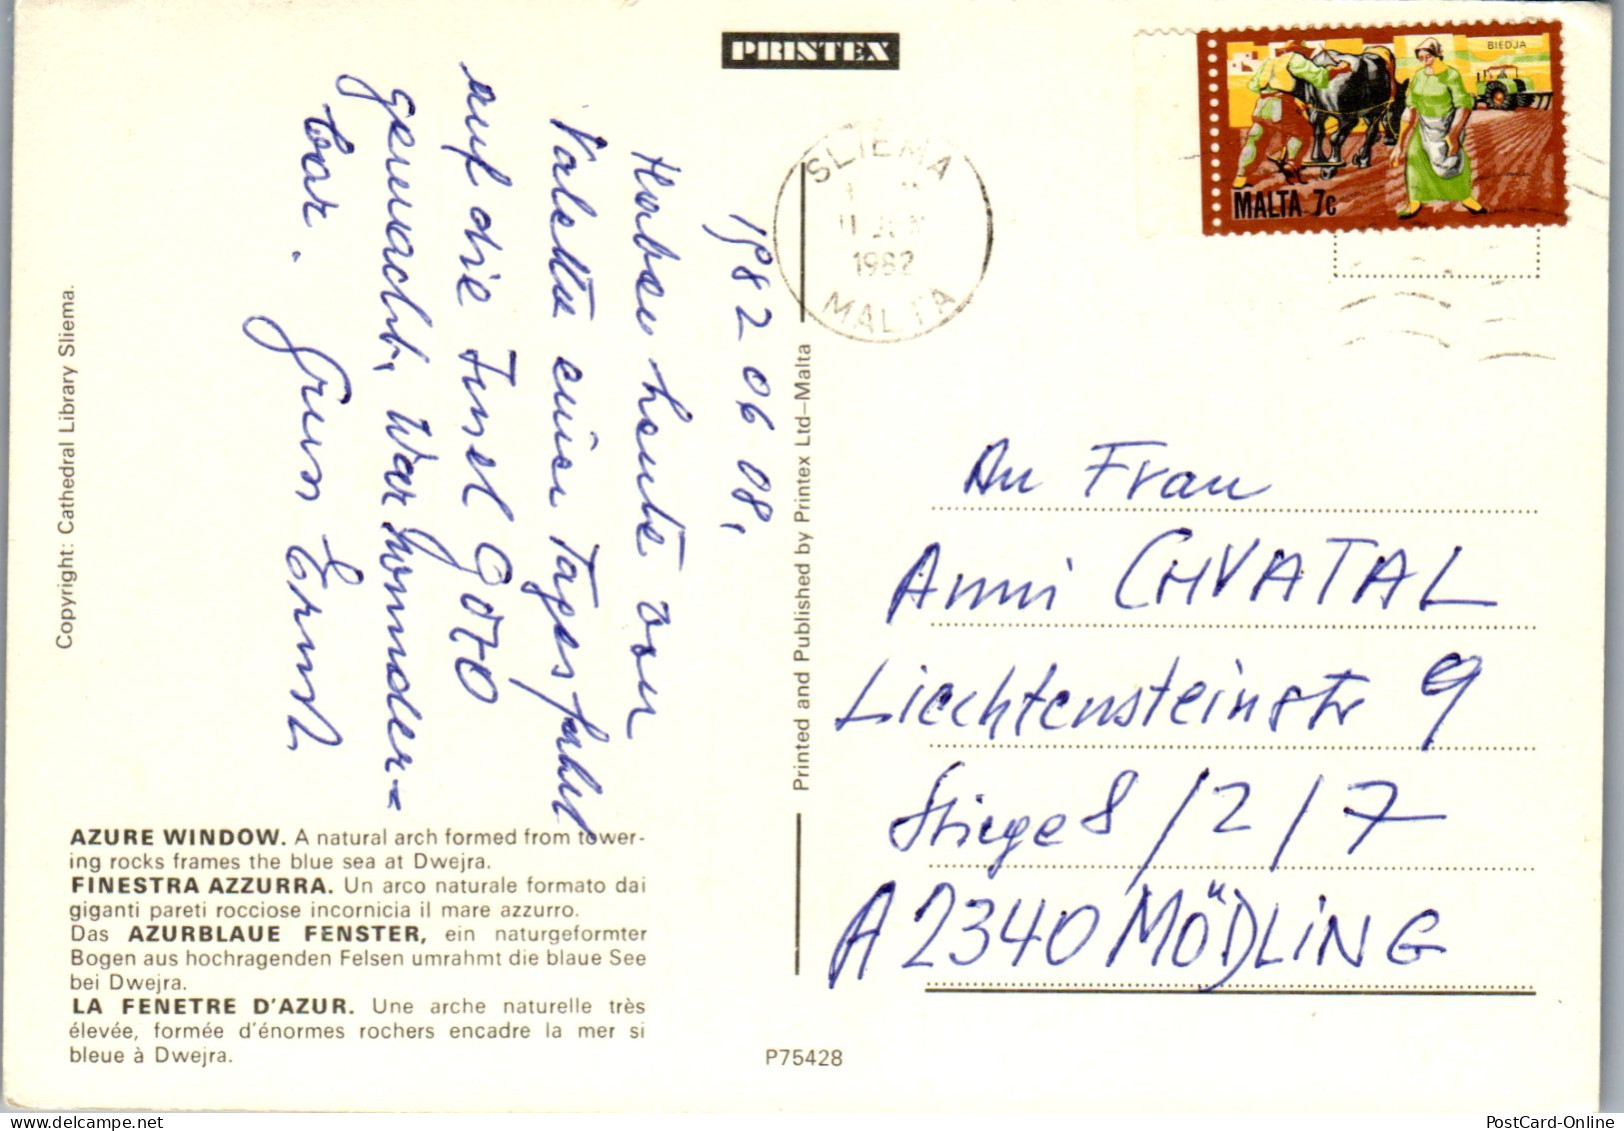 PRINTEX
BIEDJA
MALTA 7c
SLIEMA
11 JUN
1982
MALTA
1982 06 08,
Haben heute von
Valetta einen Tagesfahrt
auf die Insel Gozo
gemacht, War wunder=
bar. Gruss Ernst
An Frau
Anni CHVATAL
Liechtensteinstr 9
Stiege 8 / 2 / 7
A 2340 MÖDLING
Printed and Published by Printex Ltd–Malta
Copyright: Cathedral Library Sliema.
AZURE WINDOW. A natural arch formed from tower-
ing rocks frames the blue sea at Dwejra.
FINESTRA AZZURRA. Un arco naturale formato dai
giganti pareti rocciose incornicia il mare azzurro.
Das AZURBLAUE FENSTER, ein naturgeformter
Bogen aus hochragenden Felsen umrahmt die blaue See
bei Dwejra.
LA FENETRE D'AZUR. Une arche naturelle très
élevée, formée d'énormes rochers encadre la mer si
bleue à Dwejra.
P75428
PostCard-Online